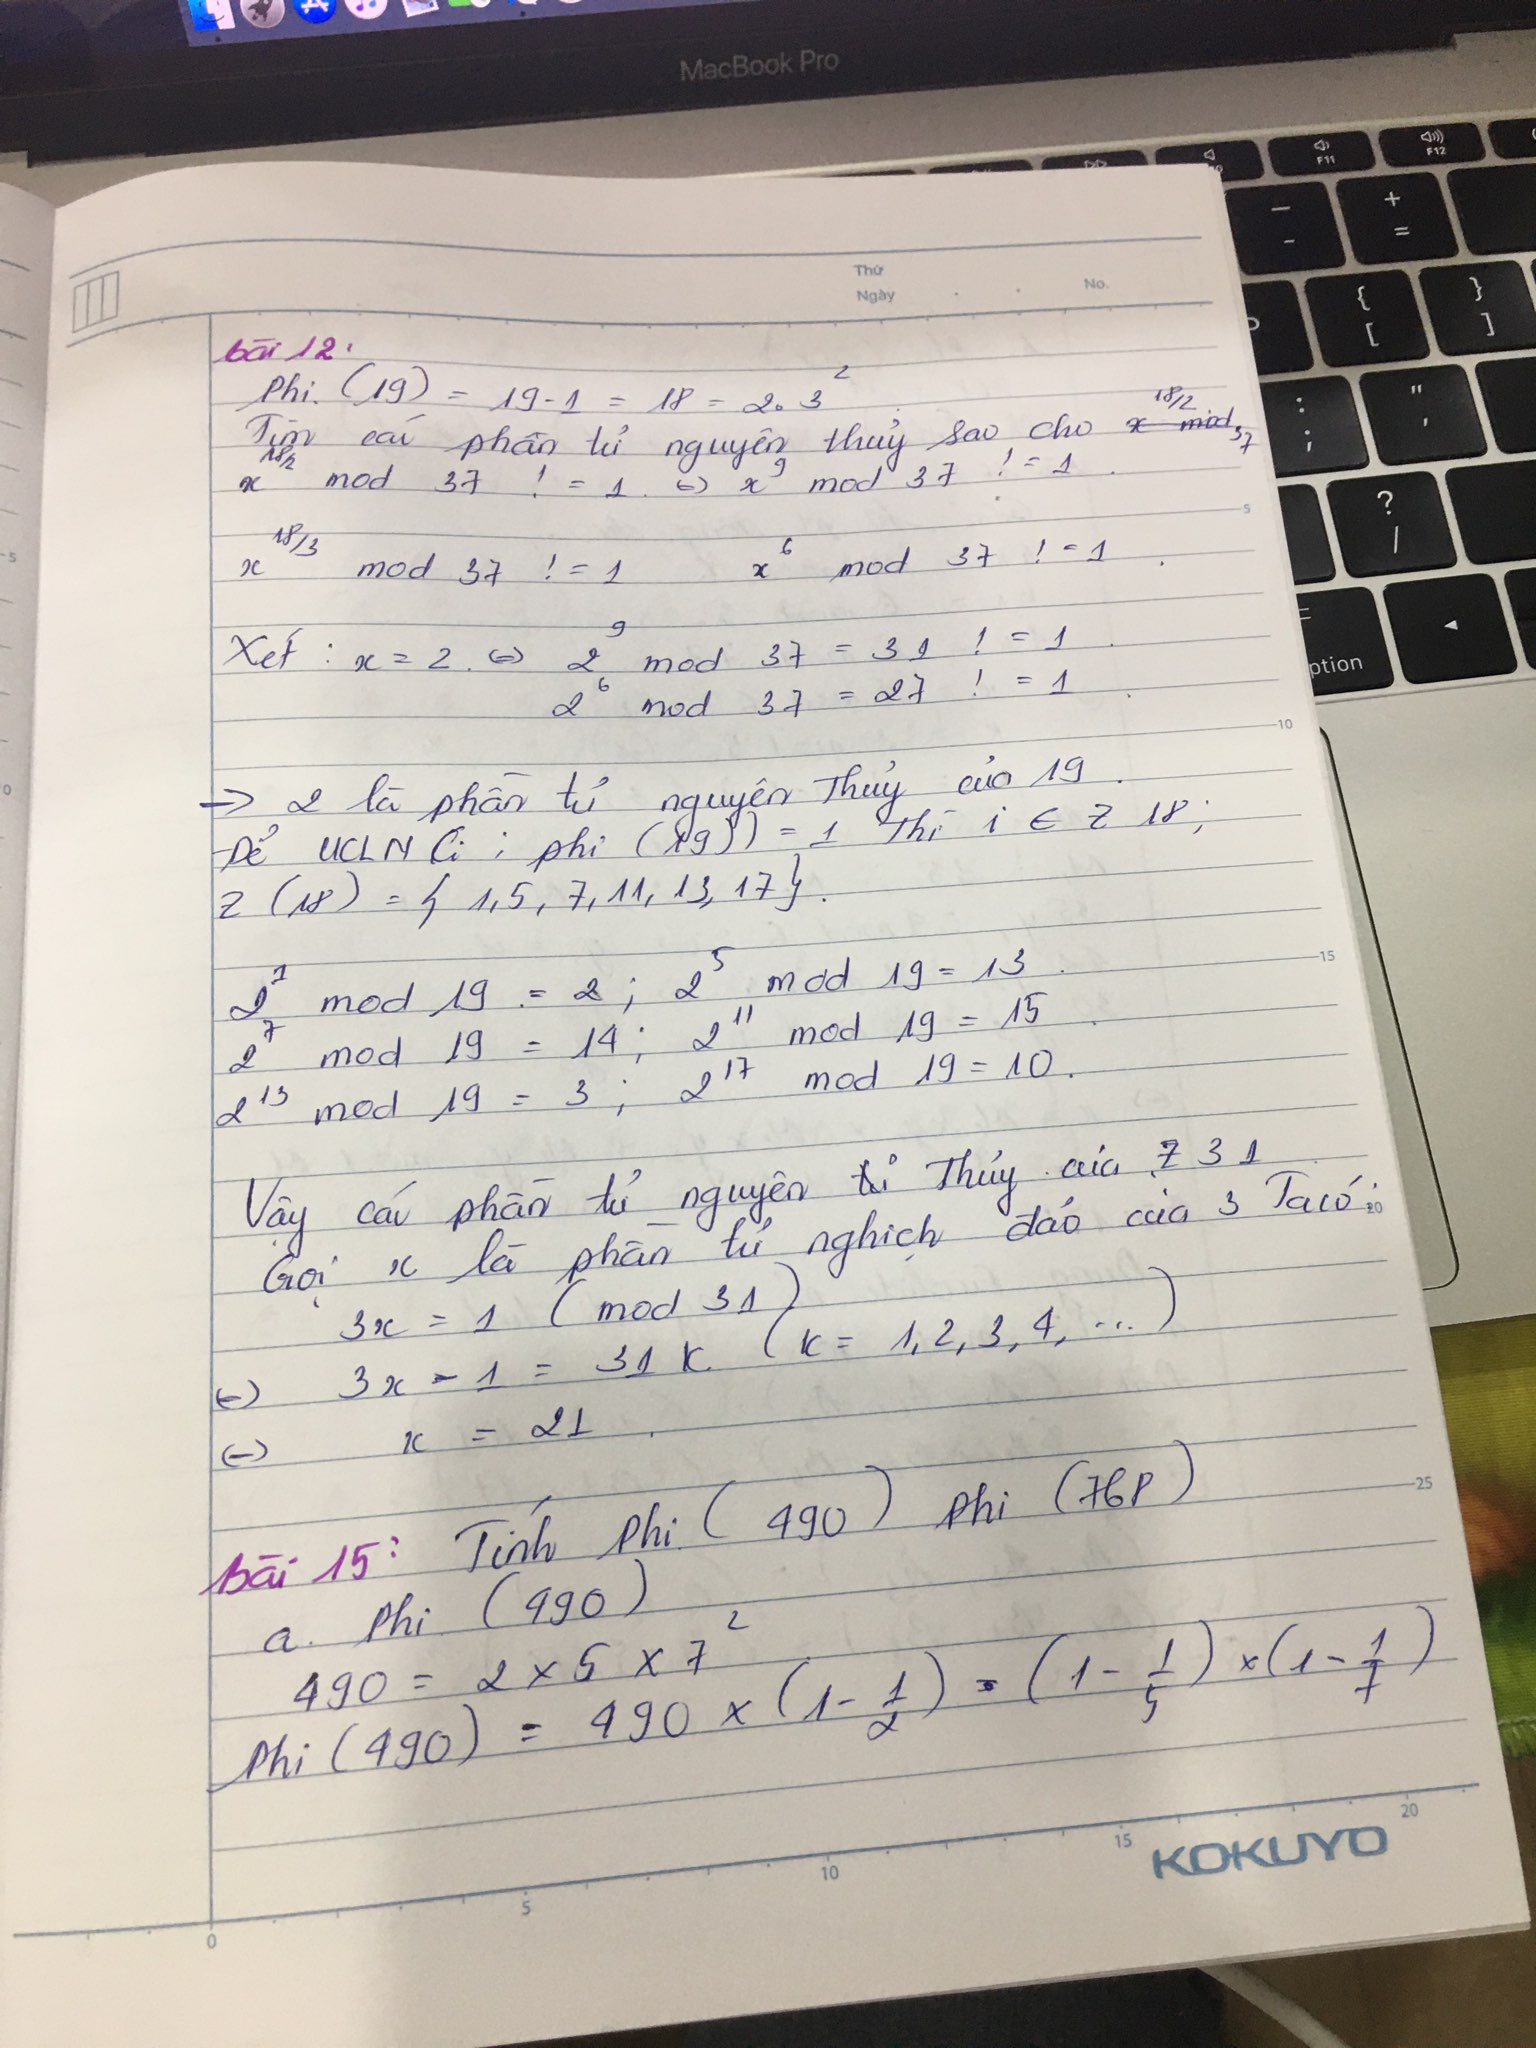 MacBook Pro
Thứ
Ngày . . No.
bài 12:
Phi. (19) = 19-1 = 18 = 2.3²
Tìm các phần tử nguyên thủy sao cho x^18/2 mod 37
x^18/2 mod 37 != 1. (=) x^9 mod 37 != 1.
x^18/3 mod 37 != 1 x^6 mod 37 != 1.
Xét: x = 2. (=) 2^9 mod 37 = 31 != 1.
2^6 mod 37 = 27 != 1.
-> 2 là phần tử nguyên Thủy của 19.
Để UCLN (i ; phi (19)) = 1 Thì i ∈ Z 18;
Z (18) = { 1,5, 7, 11, 13, 17}.
2^1 mod 19 = 2; 2^5 mod 19 = 13.
2^7 mod 19 = 14; 2^11 mod 19 = 15.
2^13 mod 19 = 3; 2^17 mod 19 = 10.
Vậy các phần tử nguyên Thủy của Z 31
Gọi x là phần tử nghịch đảo của 3 Ta có:
3x = 1 (mod 31)
(=) 3x - 1 = 31 K. (K = 1, 2, 3, 4, ...)
(=) x = 21.
bài 15: Tính Phi (490) Phi (768)
a. Phi (490)
490 = 2 x 5 x 7²
Phi (490) = 490 x (1 - 1/2) - (1 - 1/5) x (1 - 1/7)
KOKUYO
0 5 10 15 20
5
10
15
20
25
F11
F12
option